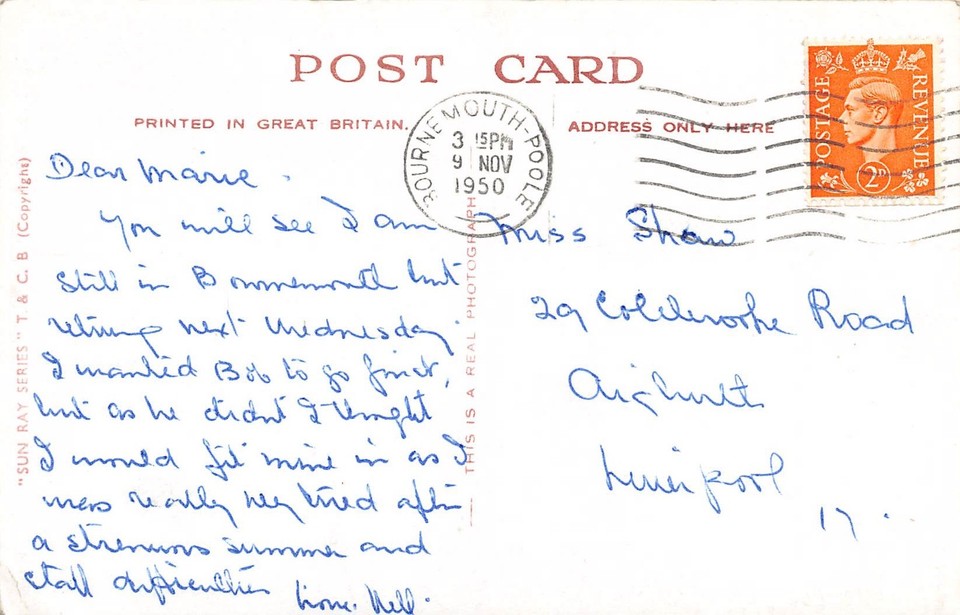 POST CARD
PRINTED IN GREAT BRITAIN.
ADDRESS ONLY HERE
"SUN RAY SERIES" T. & C. B (Copyrighs)
THIS IS A REAL PHOTOGRAPH
BOURNEMOUTH-POOLE
3 15PM
9 NOV
1950
POSTAGE
REVENUE
2D
Dear Marie.
You will see I am
still in Bournemouth but
returning next Wednesday.
I wanted Bob to go first,
but as he didnt I thought
I would fit mine in as I
was really very tired after
a strenuous summer and
staff difficulties
Love. Nell.
Miss Shaw
29 Colebrooke Road
Aigburth
Liverpool
17.